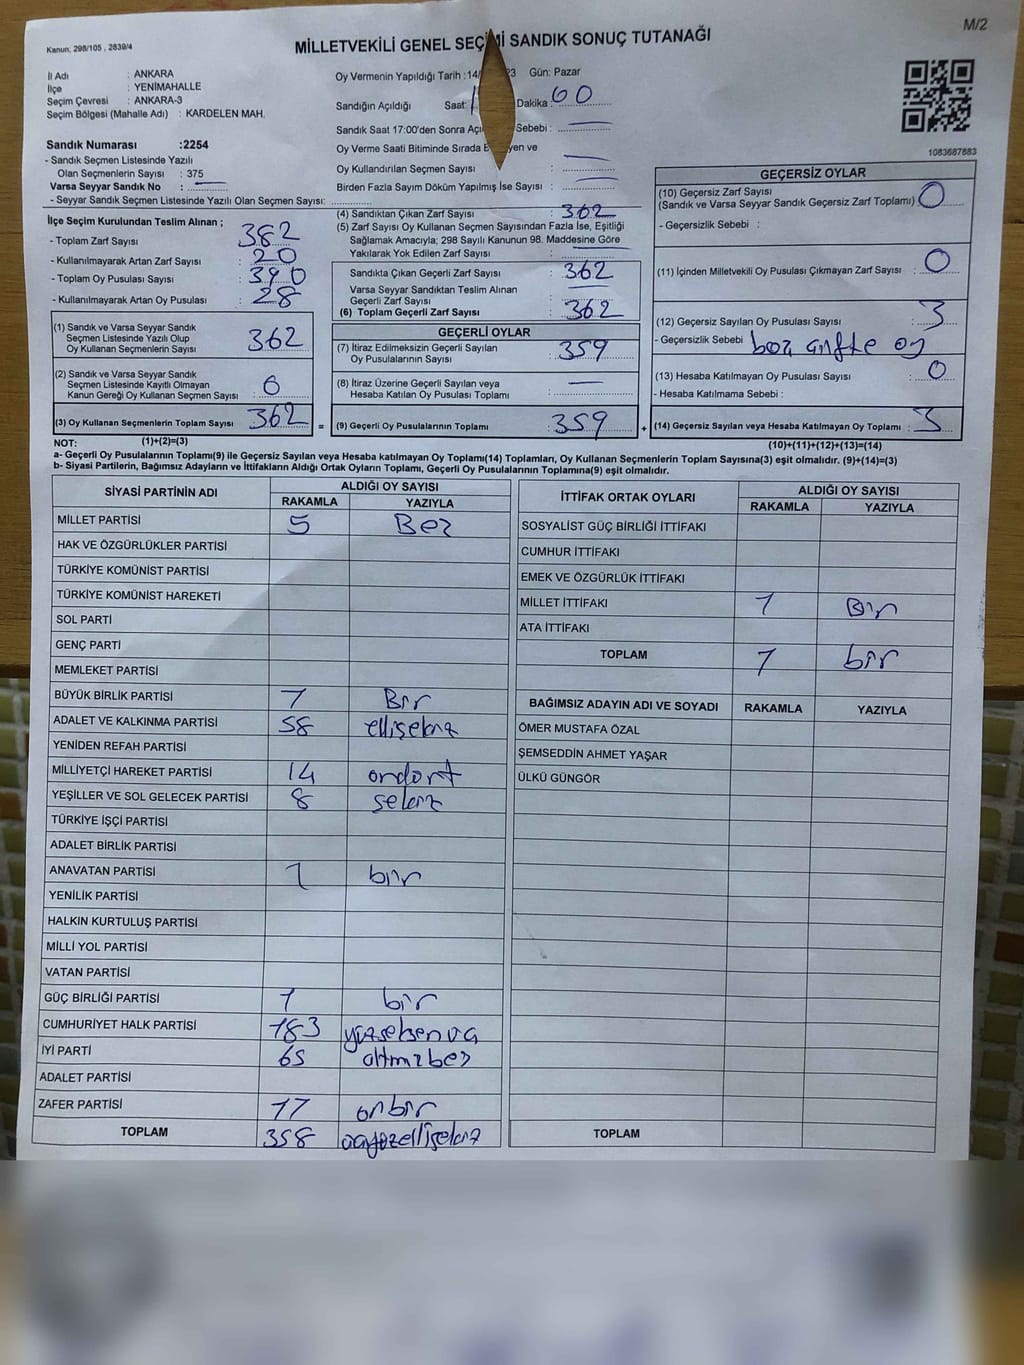 M/2
Kanun, 298/105 , 2839/4
MİLLETVEKİLİ GENEL SEÇİMİ SANDIK SONUÇ TUTANAĞI
İl Adı : ANKARA
İlçe : YENİMAHALLE
Seçim Çevresi : ANKARA-3
Seçim Bölgesi (Mahalle Adı) : KARDELEN MAH.
Oy Vermenin Yapıldığı Tarih :14/ 23 Gün: Pazar
Sandığın Açıldığı Saat: Dakika:
Sandık Saat 17:00'den Sonra Açı Sebebi :
Oy Verme Saati Bitiminde Sırada B yen ve
Oy Kullandırılan Seçmen Sayısı :
Birden Fazla Sayım Döküm Yapılmış İse Sayısı :
Sandık Numarası :2254
- Sandık Seçmen Listesinde Yazılı
Olan Seçmenlerin Sayısı : 375
Varsa Seyyar Sandık No :
- Seyyar Sandık Seçmen Listesinde Yazılı Olan Seçmen Sayısı:
1083687883
İlçe Seçim Kurulundan Teslim Alınan ;
- Toplam Zarf Sayısı : 382
- Kullanılmayarak Artan Zarf Sayısı : 20
- Toplam Oy Pusulası Sayısı : 390
- Kullanılmayarak Artan Oy Pusulası : 28
(1) Sandık ve Varsa Seyyar Sandık
Seçmen Listesinde Yazılı Olup
Oy Kullanan Seçmenlerin Sayısı : 362
(2) Sandık ve Varsa Seyyar Sandık
Seçmen Listesinde Kayıtlı Olmayan
Kanun Gereği Oy Kullanan Seçmen Sayısı : 0
(3) Oy Kullanan Seçmenlerin Toplam Sayısı : 362
(4) Sandıktan Çıkan Zarf Sayısı : 362
(5) Zarf Sayısı Oy Kullanan Seçmen Sayısından Fazla İse, Eşitliği
Sağlamak Amacıyla; 298 Sayılı Kanunun 98. Maddesine Göre
Yakılarak Yok Edilen Zarf Sayısı :
Sandıkta Çıkan Geçerli Zarf Sayısı : 362
Varsa Seyyar Sandıktan Teslim Alınan
Geçerli Zarf Sayısı :
(6) Toplam Geçerli Zarf Sayısı : 362
GEÇERLİ OYLAR
(7) İtiraz Edilmeksizin Geçerli Sayılan
Oy Pusulalarının Sayısı : 359
(8) İtiraz Üzerine Geçerli Sayılan veya
Hesaba Katılan Oy Pusulası Toplamı :
= (9) Geçerli Oy Pusulalarının Toplamı : 359
GEÇERSİZ OYLAR
(10) Geçersiz Zarf Sayısı
(Sandık ve Varsa Seyyar Sandık Geçersiz Zarf Toplamı) : 0
- Geçersizlik Sebebi :
(11) İçinden Milletvekili Oy Pusulası Çıkmayan Zarf Sayısı : 0
(12) Geçersiz Sayılan Oy Pusulası Sayısı : 3
- Geçersizlik Sebebi
(13) Hesaba Katılmayan Oy Pusulası Sayısı : 0
- Hesaba Katılmama Sebebi :
+ (14) Geçersiz Sayılan veya Hesaba Katılmayan Oy Toplamı : 3
NOT: (1)+(2)=(3)
(10)+(11)+(12)+(13)=(14)
a- Geçerli Oy Pusulalarının Toplamı(9) ile Geçersiz Sayılan veya Hesaba katılmayan Oy Toplamı(14) Toplamları, Oy Kullanan Seçmenlerin Toplam Sayısına(3) eşit olmalıdır. (9)+(14)=(3)
b- Siyasi Partilerin, Bağımsız Adayların ve İttifakların Aldığı Ortak Oyların Toplamı, Geçerli Oy Pusulalarının Toplamına(9) eşit olmalıdır.
SİYASİ PARTİNİN ADI ALDIĞI OY SAYISI
RAKAMLA YAZIYLA
MİLLET PARTİSİ 5 Beş
HAK VE ÖZGÜRLÜKLER PARTİSİ
TÜRKİYE KOMÜNİST PARTİSİ
TÜRKİYE KOMÜNİST HAREKETİ
SOL PARTİ
GENÇ PARTİ
MEMLEKET PARTİSİ
BÜYÜK BİRLİK PARTİSİ 1 Bir
ADALET VE KALKINMA PARTİSİ 58 ellisekiz
YENİDEN REFAH PARTİSİ
MİLLİYETÇİ HAREKET PARTİSİ 14 ondort
YEŞİLLER VE SOL GELECEK PARTİSİ 8 sekiz
TÜRKİYE İŞÇİ PARTİSİ
ADALET BİRLİK PARTİSİ
ANAVATAN PARTİSİ 1 bir
YENİLİK PARTİSİ
HALKIN KURTULUŞ PARTİSİ
MİLLİ YOL PARTİSİ
VATAN PARTİSİ
GÜÇ BİRLİĞİ PARTİSİ 1 bir
CUMHURİYET HALK PARTİSİ 183
İYİ PARTİ 65 altmışbeş
ADALET PARTİSİ
ZAFER PARTİSİ 11 onbir
TOPLAM 358
İTTİFAK ORTAK OYLARI ALDIĞI OY SAYISI
RAKAMLA YAZIYLA
SOSYALİST GÜÇ BİRLİĞİ İTTİFAKI
CUMHUR İTTİFAKI
EMEK VE ÖZGÜRLÜK İTTİFAKI
MİLLET İTTİFAKI 1 Bir
ATA İTTİFAKI
TOPLAM 1 bir
BAĞIMSIZ ADAYIN ADI VE SOYADI RAKAMLA YAZIYLA
ÖMER MUSTAFA ÖZAL
ŞEMSEDDİN AHMET YAŞAR
ÜLKÜ GÜNGÖR
TOPLAM